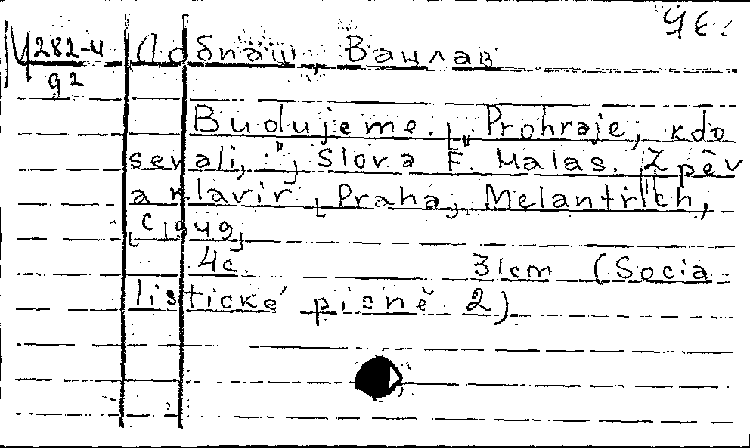 Ч 282-4
92
Добиаш, Вацлав
Budujeme. ["Prohraje, kdo
se valí,:"] Slova F. Halas. Zpěv
a klavír [Praha], Melantrich,
[c 1949]
4c 31cm (Socia
listické písně 2)